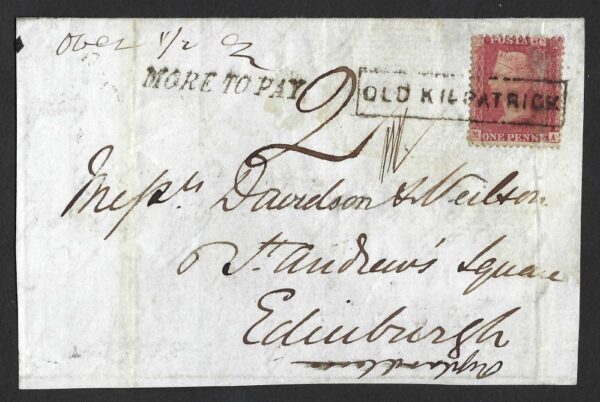 Over 1/2 oz
MORE TO PAY
OLD KILPATRICK
POSTAGE
ONE PENNY
A
2
Messrs Davidson & Neilson
6 St. Andrew's Square
Edinburgh